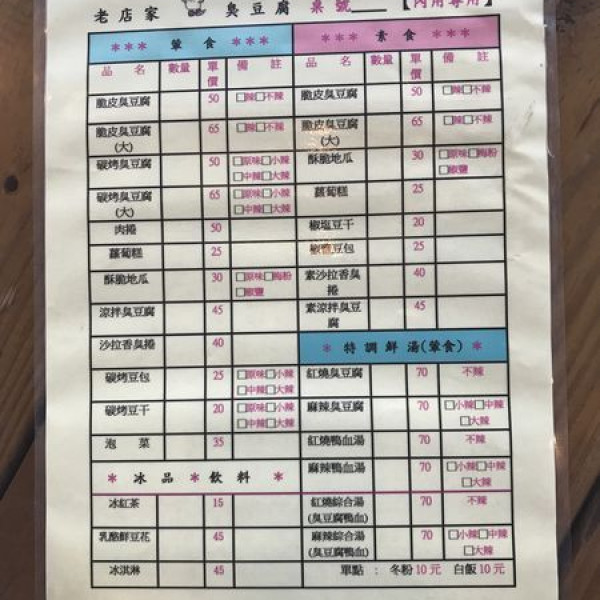 老店家 臭豆腐 桌號____ 【內用專用】
＊＊＊ 葷食 ＊＊＊
品名 數量 單價 備註
脆皮臭豆腐 50 □辣□不辣
脆皮臭豆腐(大) 65 □辣□不辣
碳烤臭豆腐 50 □原味□小辣
□中辣□大辣
碳烤臭豆腐(大) 65 □原味□小辣
□中辣□大辣
肉捲 50
蘿蔔糕 25
酥脆地瓜 30 □原味□梅粉
□椒鹽
涼拌臭豆腐 45
沙拉香臭捲 40
碳烤豆包 25 □原味□小辣
□中辣□大辣
碳烤豆干 20 □原味□小辣
□中辣□大辣
泡菜 35
＊ 冰品 ＊ 飲料 ＊
冰紅茶 15
乳酪鮮豆花 45
冰淇淋 45
＊＊＊ 素食 ＊＊＊
品名 數量 單價 備註
脆皮臭豆腐 50 □辣□不辣
脆皮臭豆腐(大) 65 □辣□不辣
酥脆地瓜 30 □原味□梅粉
□椒鹽
蘿蔔糕 25
椒塩豆干 20
椒鹽豆包 25
素沙拉香臭捲 40
素涼拌臭豆腐 45
＊ 特調鮮湯(葷食) ＊
紅燒臭豆腐 70 不辣
麻辣臭豆腐 70 □小辣□中辣
□大辣
紅燒鴨血湯 70 不辣
麻辣鴨血湯 70 □小辣□中辣
□大辣
紅燒綜合湯 70 不辣
(臭豆腐鴨血)
麻辣綜合湯 70 □小辣□中辣
(臭豆腐鴨血) □大辣
單點 : 冬粉10元 白飯10元